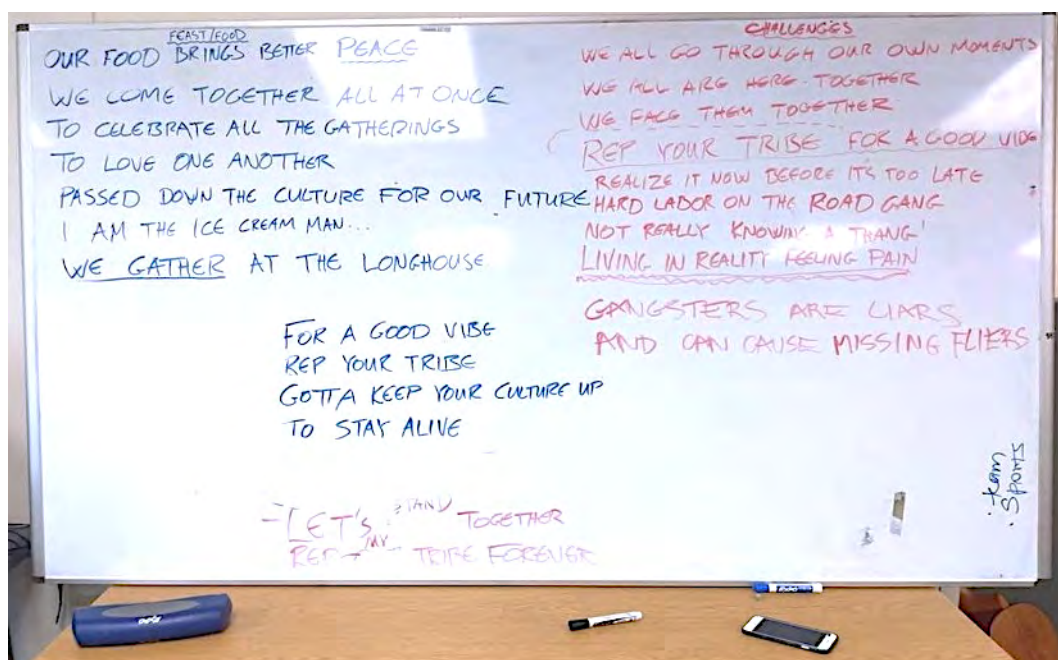 FEAST/FOOD
OUR FOOD BRINGS BETTER PEACE
WE COME TOGETHER ALL AT ONCE
TO CELEBRATE ALL THE GATHERINGS
TO LOVE ONE ANOTHER
PASSED DOWN THE CULTURE FOR OUR FUTURE
I AM THE ICE CREAM MAN...
WE GATHER AT THE LONGHOUSE
FOR A GOOD VIBE
REP YOUR TRIBE
GOTTA KEEP YOUR CULTURE UP
TO STAY ALIVE
- LET'S STAND TOGETHER
REP MY TRIBE FOREVER
CHALLENGES
WE ALL GO THROUGH OUR OWN MOMENTS
WE ALL ARE HERE TOGETHER
WE FACE THEM TOGETHER
REP YOUR TRIBE FOR A GOOD VIBE
REALIZE IT NOW BEFORE IT'S TOO LATE
HARD LABOR ON THE ROAD GANG
NOT REALLY KNOWING A THANG'
LIVING IN REALITY FEELING PAIN
GANGSTERS ARE LIARS
AND CAN CAUSE MISSING FLIERS
· team
· Sports
EXPO